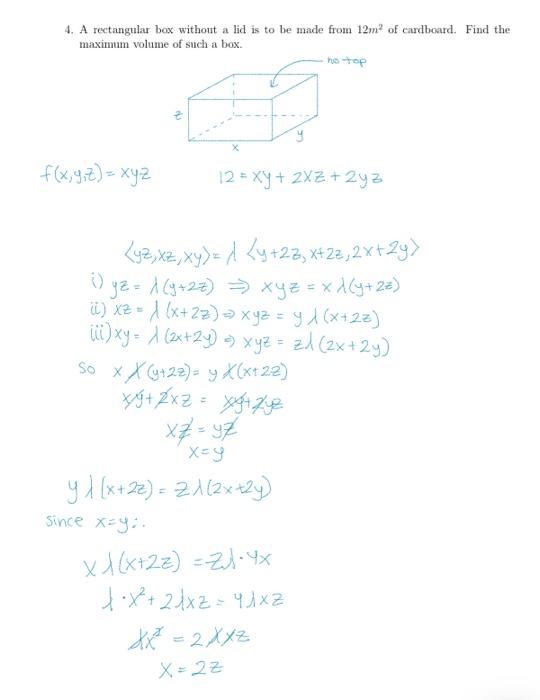 4. A rectangular box without a lid is to be made from 12m² of cardboard. Find the
maximum volume of such a box.
no top
z
x
y
f(x,y,z) = xyz
12 = xy + 2xz + 2yz
⟨yz, xz, xy⟩ = λ ⟨y+2z, x+2z, 2x+2y⟩
i) yz = λ(y+2z) ⇒ xyz = xλ(y+2z)
ii) xz = λ(x+2z) ⇒ xyz = yλ(x+2z)
iii) xy = λ(2x+2y) ⇒ xyz = zλ(2x+2y)
So xλ(y+2z) = yλ(x+2z)
xy + 2xz = xy + 2yz
xz = yz
x = y
yλ(x+2z) = zλ(2x+2y)
since x=y:.
xλ(x+2z) = zλ·4x
λ·x² + 2λxz = 4λxz
λx² = 2λxz
x = 2z